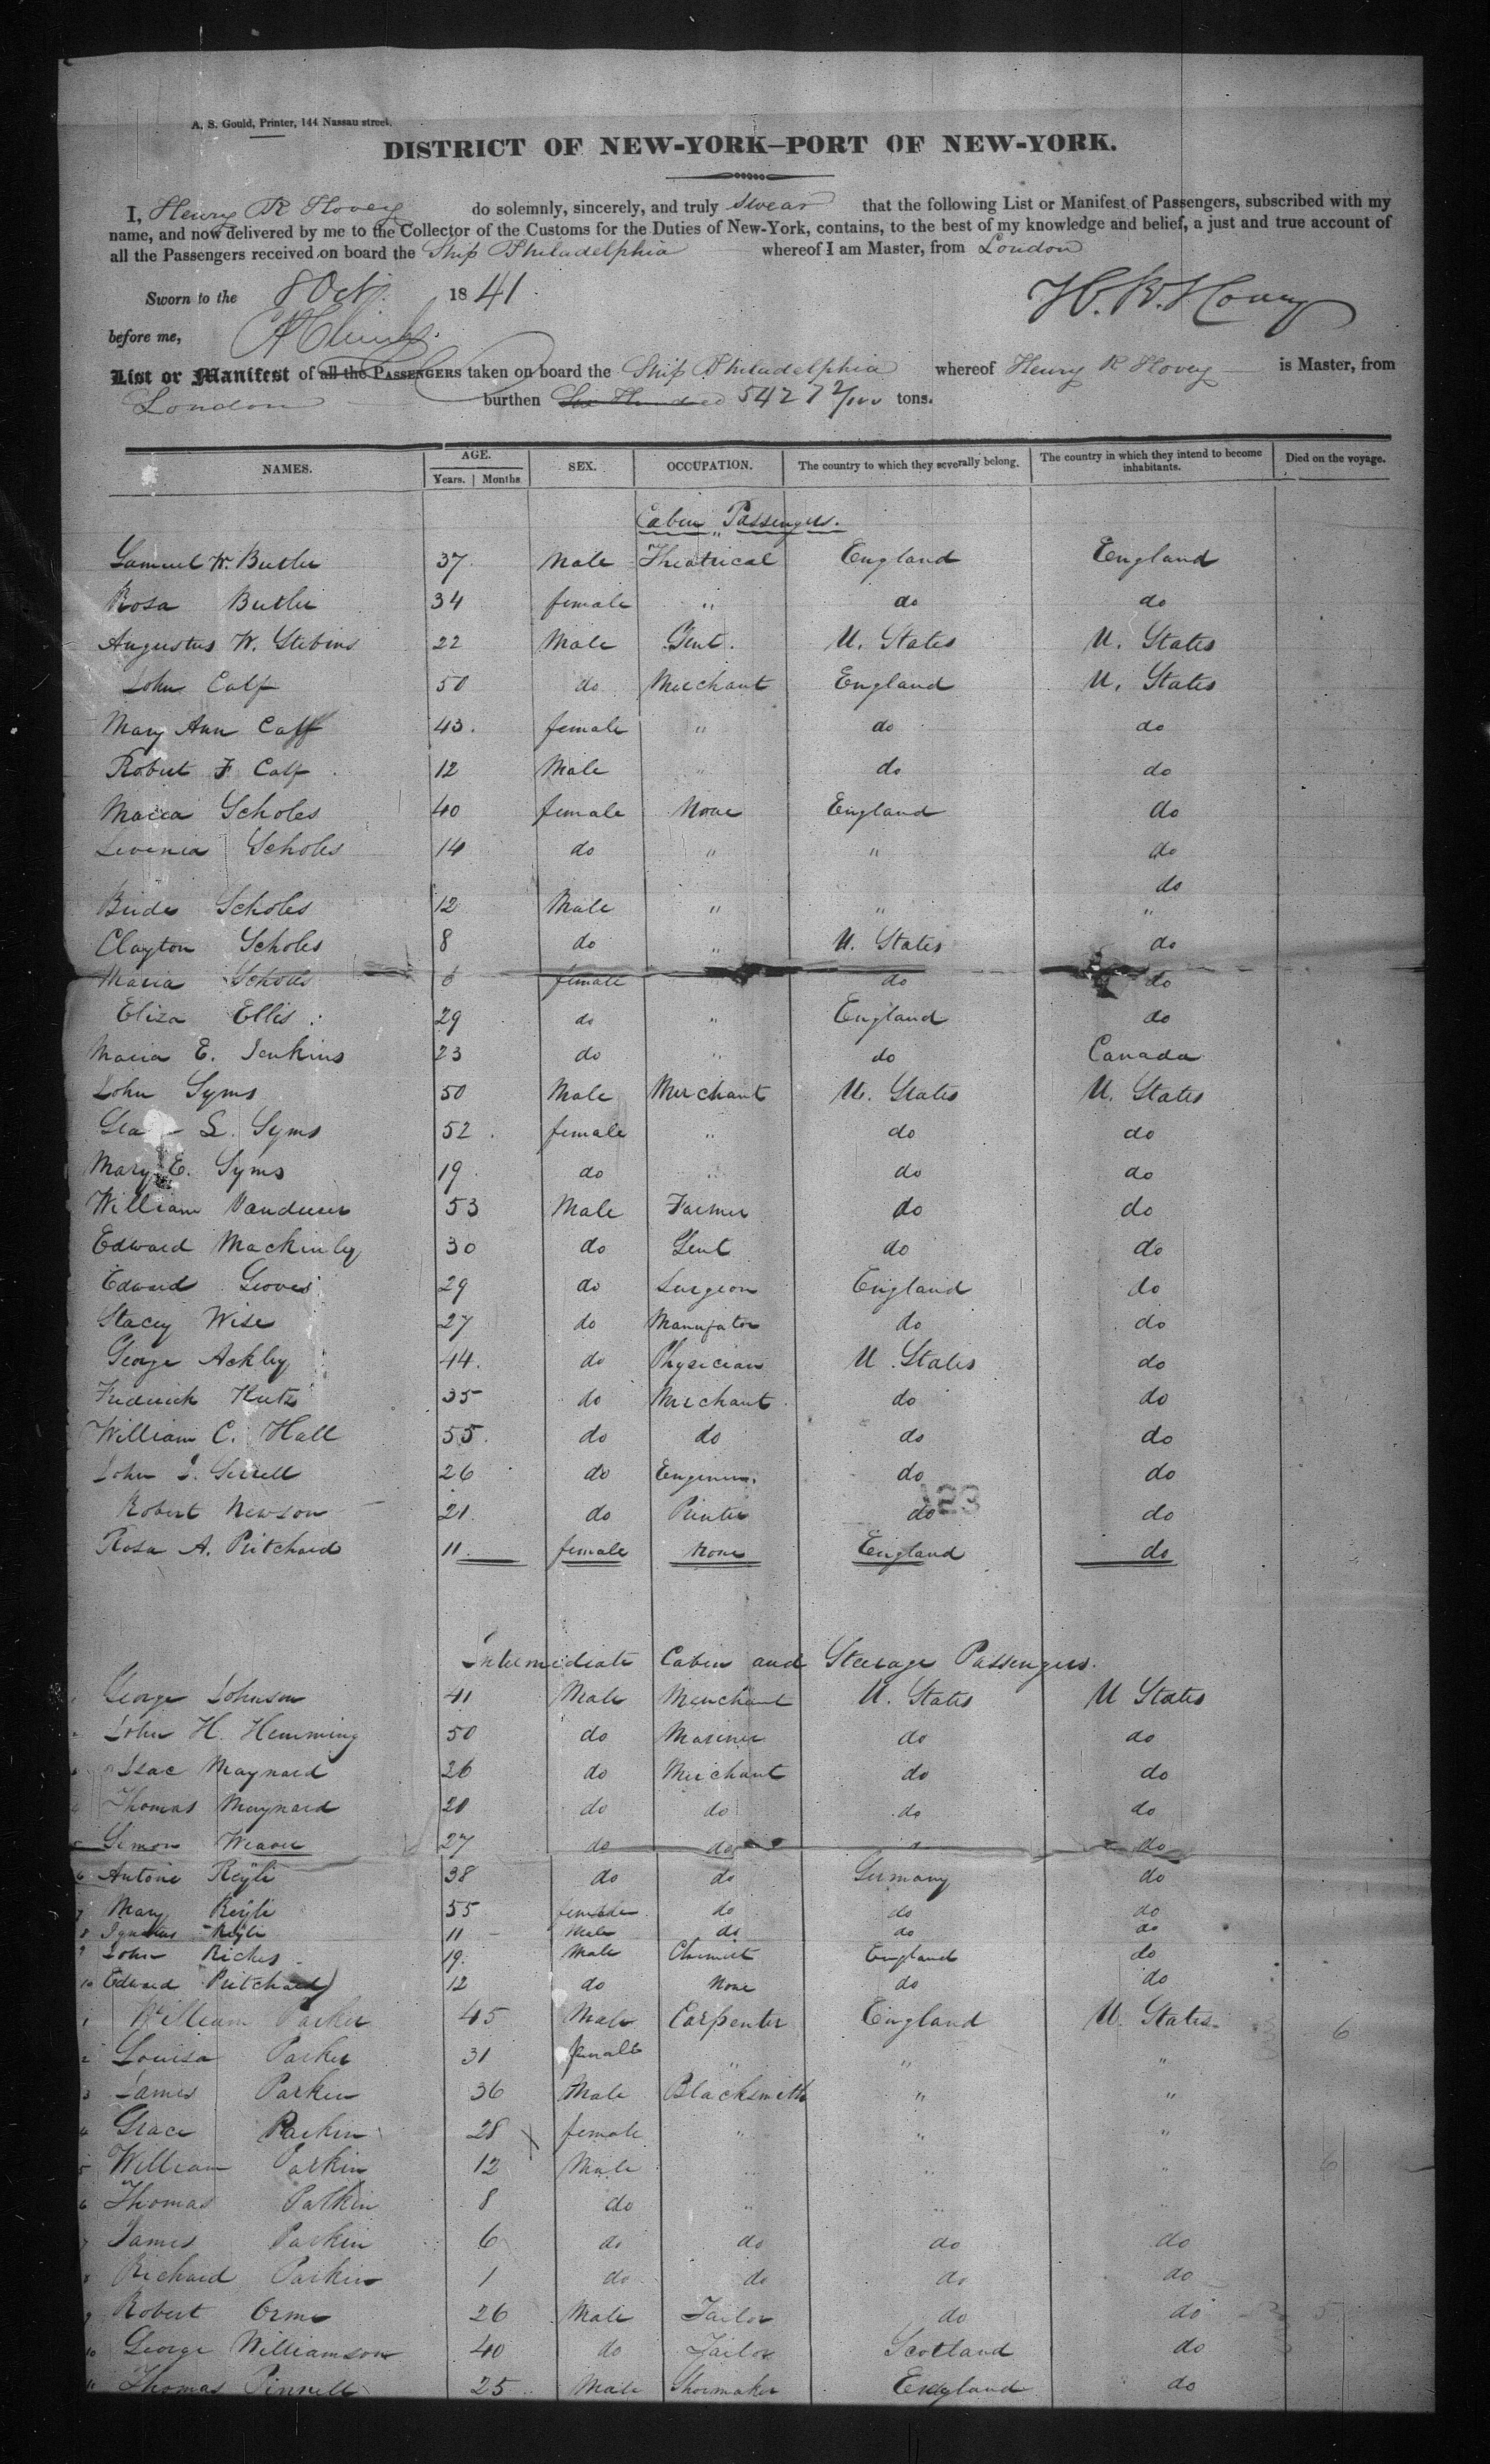 A. S. Gould, Printer, 144 Nassau street.
DISTRICT OF NEW-YORK—PORT OF NEW-YORK.
I, Henry R Hovey do solemnly, sincerely, and truly swear that the following List or Manifest of Passengers, subscribed with my
name, and now delivered by me to the Collector of the Customs for the Duties of New-York, contains, to the best of my knowledge and belief, a just and true account of
all the Passengers received on board the Ship Philadelphia whereof I am Master, from London
Sworn to the 8 Oct 1841
H. R. Hovey
before me,
List or Manifest of all the PASSENGERS taken on board the Ship Philadelphia whereof Henry R Hovey is Master, from
London burthen Six Hundred 542 72/100 tons.
NAMES. AGE. SEX. OCCUPATION. The country to which they severally belong. The country in which they intend to become inhabitants. Died on the voyage.
Years. Months
Cabin Passengers.
Samuel W. Butler 37 Male Theatrical England England
Rosa Butler 34 female " do do
Augustus W. Stebins 22 Male Gent. U. States U. States
John Calf 50 do Merchant England U. States
Mary Ann Calf 43. female " do do
Robert F Calf 12 Male " do do
Maria Scholes 40 female None England do
Levenia Scholes 14 do " " do
do
Scholes 12 Male " " "
Clayton Scholes 8 do " U. States do
Maria Scholes 6 female do do
Eliza Ellis 29 do " England do
Maria E. Jenkins 23 do " do Canada
John Syms 50 Male Merchant U. States U. States
S. Syms 52. female " do do
Mary E. Syms 19 do " do do
William 53 Male Farmer do do
Edward Mackinley 30 do Gent do do
Edward Groves 29 do Surgeon England do
Stacey Wise 27 do do do
George Ackley 44. do Physician U. States do
Frederick 35 do Merchant do do
William C. Hall 55. do do do do
John 26 do Engineer. do do
Robert Newson 21. do Printer do do
123
Rosa A. Pritchard 11 female None England do
Intermediate Cabin and Steerage Passengers.
1 George Johnson 41 Male Merchant U. States U States
2 John H. Hemming 50 do Mariner do do
3 Isac Maynard 26 do Merchant do do
4 Thomas Maynard 20 do do do do
5 Simon Weaver 27 do do " do
6 Antoine Reyle 38 do do Germany do
7 Mary Reyle 55 female do do do
8 Ignatius Reyle 11 Male do do do
9 John Riches 19. Male Chemist England do
10 Edward Pritchard 12 do None do do
1 William Parker 45 Male Carpenter England U. States 6
2 Louisa Parker 31 female " " "
3 James Parkin 36 Male Blacksmith " "
4 Grace Parkin 28 female " " "
5 William Parkin 12 Male " " " 6
6 Thomas Parkin 8 do " " "
7 James Parkin 6 do do do do
8 Richard Parkin 1 do do do do
9 Robert Orme 26 Male Tailor do do 5
10 George Williamson 40 do Tailor Scotland do
11 Thomas Pinnell 25 Male Shoemaker England do